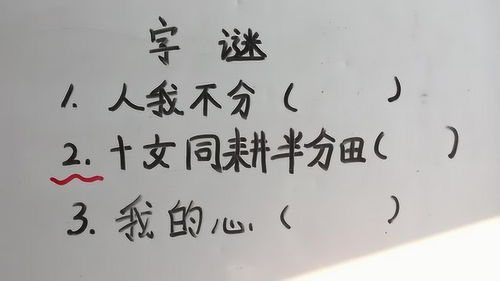 字 谜
1. 人我不分（ ）
2. 十女同耕半分田（ ）
3. 我的心.（ ）